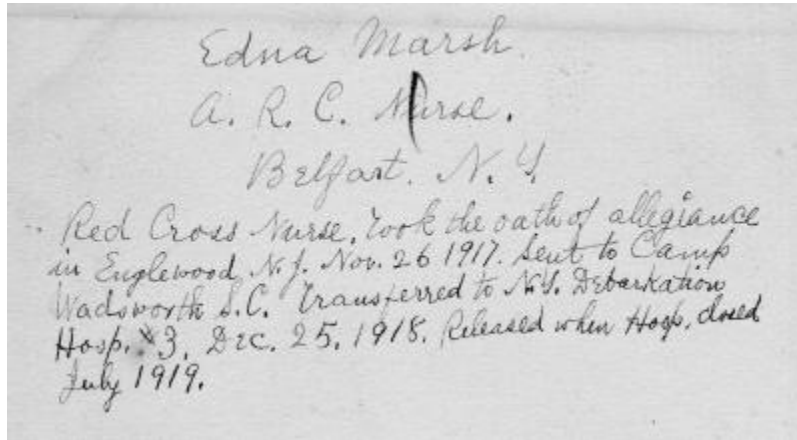 Edna Marsh.
A. R. C. Nurse.
Belfast. N. Y.
Red Cross Nurse. Took the oath of allegiance
in Englewood N.J. Nov. 26 1917. Sent to Camp
Wadsworth S.C. Transferred to N.Y. Debarkation
Hosp. #3. Dec. 25. 1918. Released when Hosp. closed
July 1919.